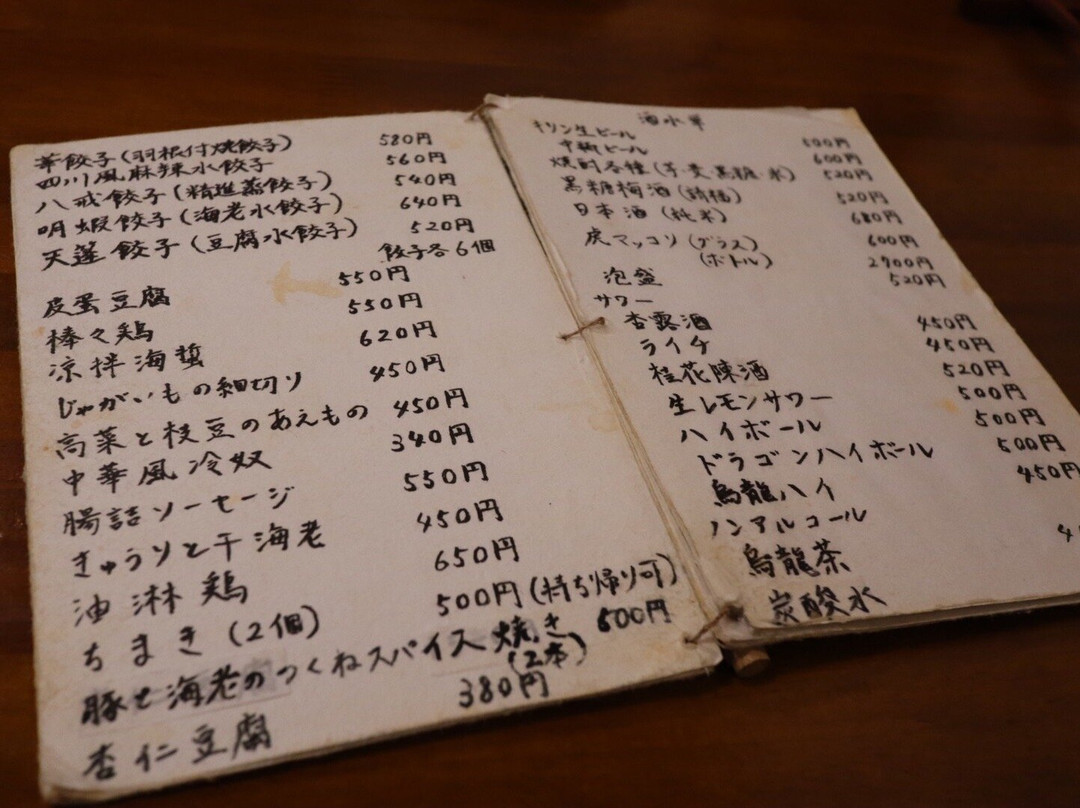 華餃子(羽根付焼餃子) 580円
四川風麻辣水餃子 560円
八戒餃子(精進蒸餃子) 540円
明蝦餃子(海老水餃子) 640円
天蓬餃子(豆腐水餃子) 520円
餃子各6個
皮蛋豆腐 550円
棒々鶏 550円
涼拌海蜇 620円
じゃがいもの細切り 450円
高菜と枝豆のあえもの 450円
中華風冷奴 340円
腸詰ソーセージ 550円
きゅうりと干海老 450円
油淋鶏 650円
ちまき(2個) 500円(持ち帰り可)
豚と海老のつくねスパイス焼き(2本) 600円
杏仁豆腐 380円
酒水単
キリン生ビール 500円
中瓶ビール 600円
焼酎各種(芋・麦・黒糖・米) 520円
黒糖梅酒(請福) 520円
日本酒(純米) 680円
虎マッコリ(グラス) 600円
(ボトル) 2900円
泡盛 520円
サワー
杏露酒 450円
ライチ 450円
桂花陳酒 520円
生レモンサワー 500円
ハイボール 500円
ドラゴンハイボール 500円
烏龍ハイ 450円
ノンアルコール
烏龍茶
炭酸水